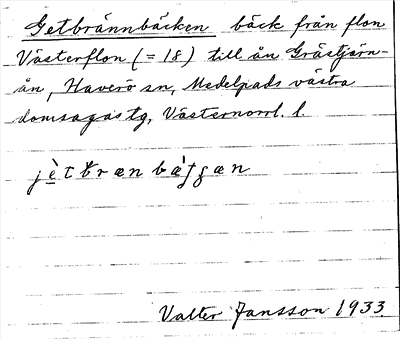 Getbrännbäcken bäck från flon
Västerflon (= 18) till ån Gråstjärn-
ån, Haverö sn, Medelpads västra
domsagas tg, Västernorrl. l.
Valter Jansson 1933.